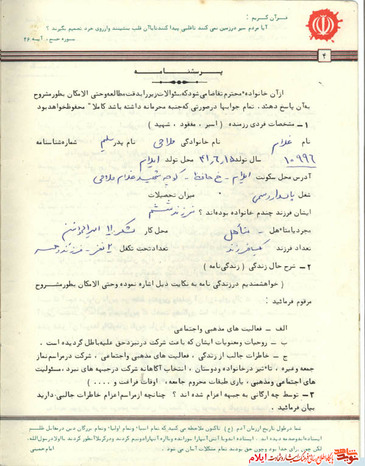 قرآن کریم :
آیا مردم سیر در زمین نمی کنند تا قلبی پیدا کنند تا با آن قلب بینشمند و از روی خرد تصمیم بگیرند ؟
سوره حج ـ آیه ۴۶
۴
پرسشنامه
از آن خانواده محترم تقاضا می شود که سئوالات زیر را بدقت مطالعه و حتی الامکان بطور مشروح
به آن پاسخ دهند . تمام جوابها در صورتی که جنبه محرمانه داشته باشد کاملا" محفوظ خواهد بود
۱ـ مشخصات فردی رزمنده ( اسیر ، مفقود ، شهید )
نام غلام نام خانوادگی ملاحی نام پدر سلیم شماره شناسنامه
۱۰۹۹۶ سال تولد ۴۱,۶,۱۵ محل تولد ایلام
آدرس محل سکونت ایلام - خ حافظ - کوچه شهید غلام ملاحی
شغل پاسدار رسمی میزان تحصیلات
ایشان فرزند چندم خانواده بوده اند ؟ فرزند ششم
مجرد یا متاهل - متأهل محل کار لشکر ۱۱ امیرالمؤمنین
تعداد فرزند یک فرزند تعداد تحت تکفل ۲ نفر -
۲ـ شرح حال زندگی ( زندگی نامه )
( خواهشمندیم در زندگی نامه به نکایت ذیل اشاره نموده و حتی الامکان بطور مشروح
مرقوم فرمائید :
الف ـ فعالیت های مذهبی و اجتماعی .
ب ـ روحیات و معنویات ایشان که باعث شرکت در نبرد حق علیه باطل گردیده است .
ج ـ خاطرات جالب از زندگی ، فعالیت های مذهبی و اجتماعی ، شرکت در مراسم نماز
جمعه و غیره ، تاثیر در خانواده و دوستان ، انتخاب آگاهانه شرکت در جبهه های نبرد ، مسئولیت
های اجتماعی و مذهبی ، یاری طبقات محروم جامعه ، اوقات فراغت و . . . . )
۳ـ توسط چه ارگانی به جبهه اعزام شدند ؟ چنانچه از مراسم اعزام خاطرات جالبی دارید
بیان فرمائید .
امام خمینی
ایلام